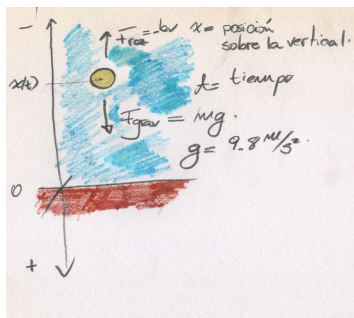 −
F roz = -bv
x = posición
sobre la vertical.
x(t)
t = tiempo
F grav = mg.
g = 9.8 m/s².
0
+